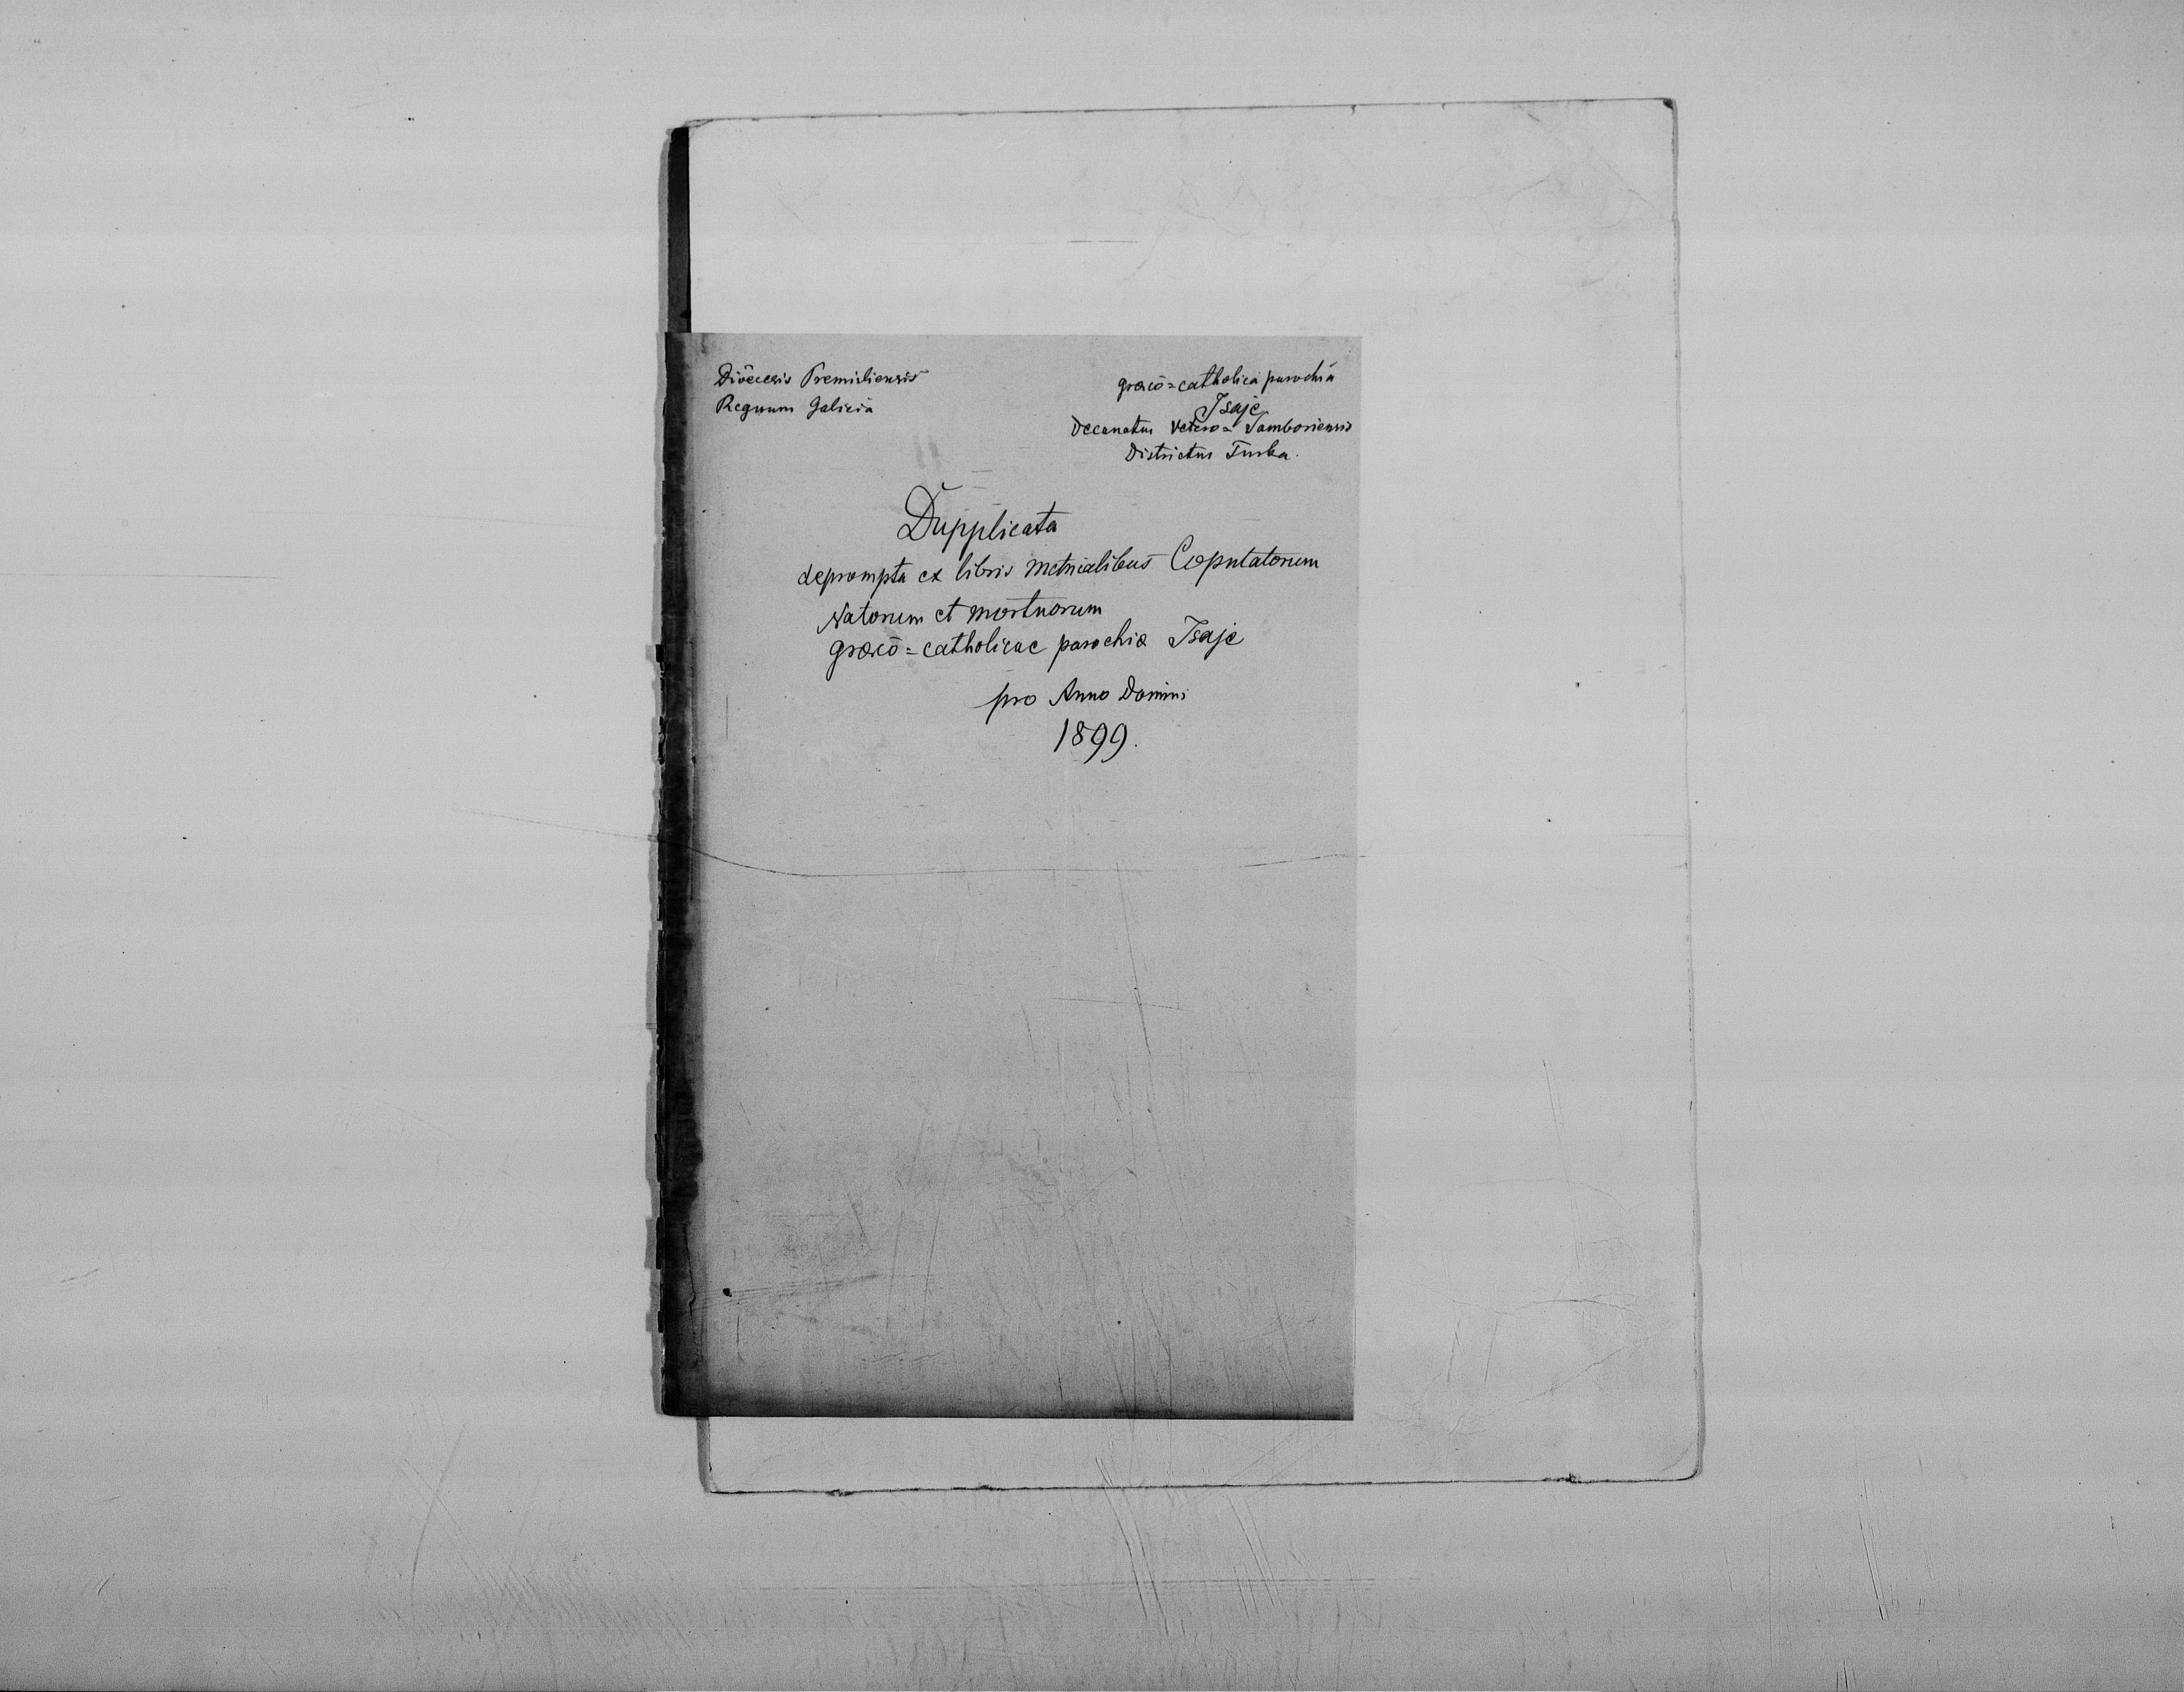 Diöecesis Premisliensis
Regnum Galicia
græcó=catholica parochia
Isaje
Decanatus Vetero=Samboriensis
Districtus Turka.
Dupplicata
deprompta ex libris metricalibus Copulatorum
Natorum et mortuorum
græcó=catholicae parochiæ Isaje
pro Anno Domini
1899.